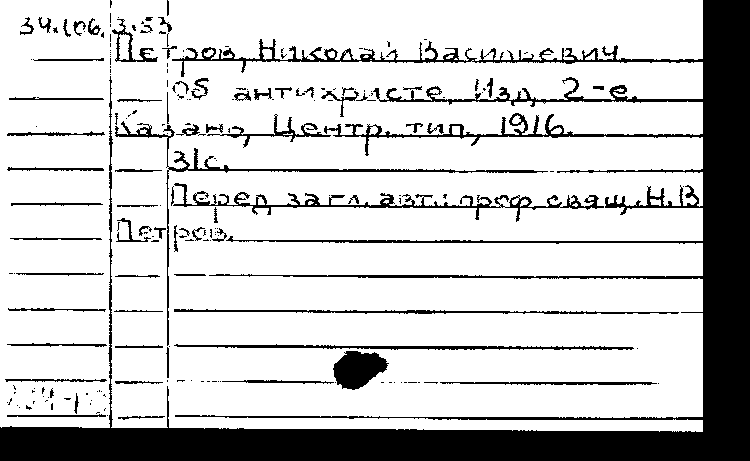 34.106.3.53
Петров, Николай Васильевич.
Об антихристе. Изд. 2-е.
Казань, Центр. тип., 1916.
31с.
Перед загл. авт.: проф. свящ. Н.В
Петров.